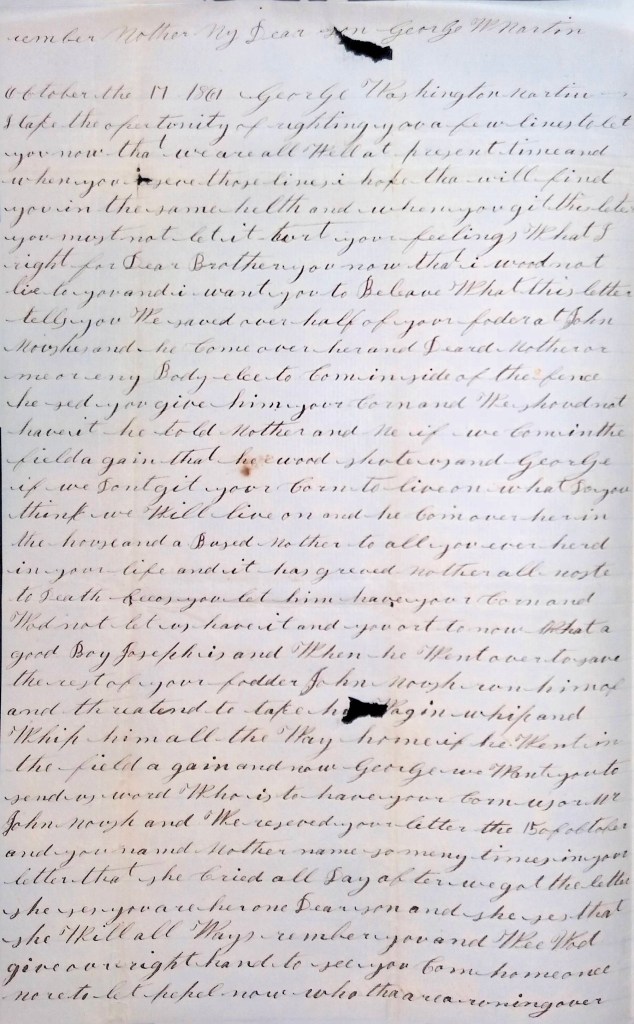 rember Mother My Dear son George W Martin
October the 17 1861 George Washington Martin
I take the opertunity of righting you a few lines to let
you now that we are all Well at present time and
when you reseve those lines i hope tha will find
you in the same helth and when you git this leter
you must not let it hurt your feelings What I
right for Dear Brother you now that i wood not
lie to you and i want you to Beleave What this letter
tells you We saved over half of your foder at John
and he Come over her and Deard Mother or
me or eny Body elce to Com in side of the fence
he sed you give him your Corn and We shoud not
have it he told Mother and Me if we Com in the
field a gain that he wood shote us and George
if we Dont git your Corn to live on what Do you
think we Will live on and he Com over her in
the house and a Bused Mother to all you ever herd
in your life and it has greved Mother all moste
to Death Becos you let him have your Corn and
Wod not let us have it and you ort to now What a
good Boy Joseph is and When he Went over to save
the rest of your fodder John run him of
and threatend to take whip and
Whip him all the Way home if he Went in
the field a gain and now George we Want you to
send us word Who is to have your Corn us or Mr
John and We reseved your letter the 15 of october
and you named Mother name so meny times in your
letter that she Cried all Day after we got the letter
she ses you are her one Dear son and she ses that
she Will all Ways rember you and Wee Wod
give our right hand to see you Com home once
more to let pepel now who tha are runing over